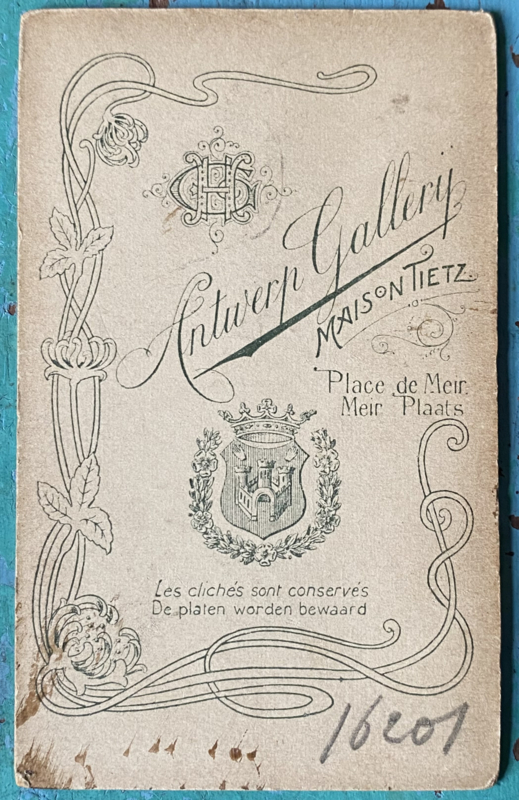 Antwerp Gallery
MAISON TIETZ.
Place de Meir.
Meir Plaats
Les clichés sont conservés
De platen worden bewaard
16201